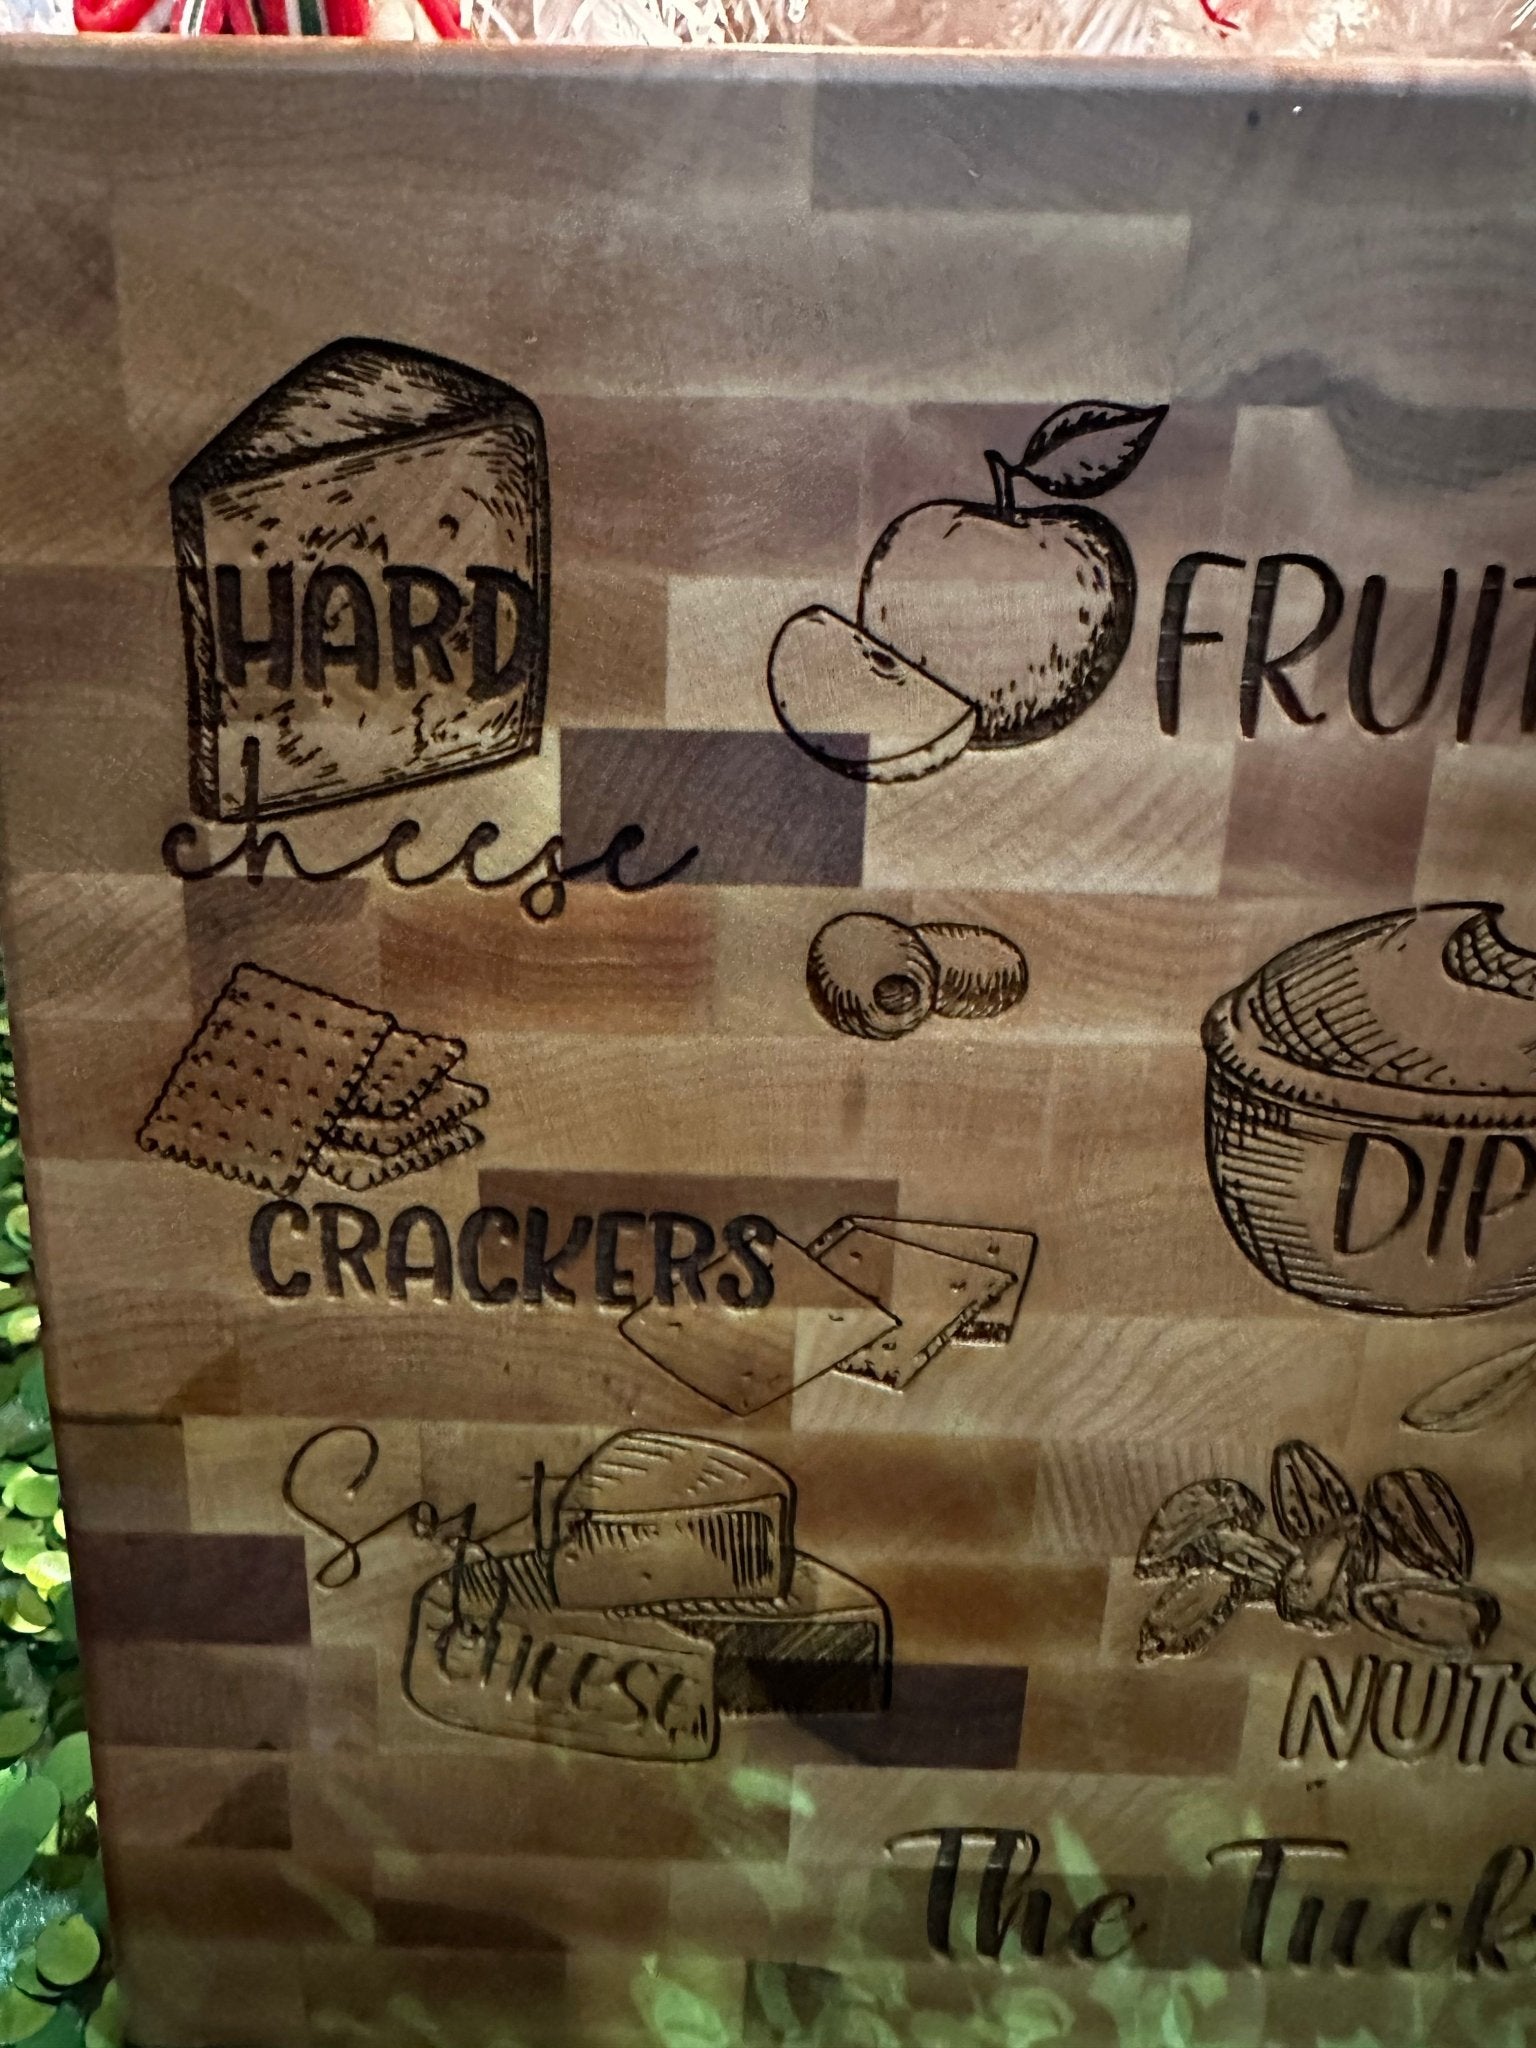 HARD
cheese
FRUIT
DIP
CRACKERS
Soft
CHEESE
NUTS
The Tuck